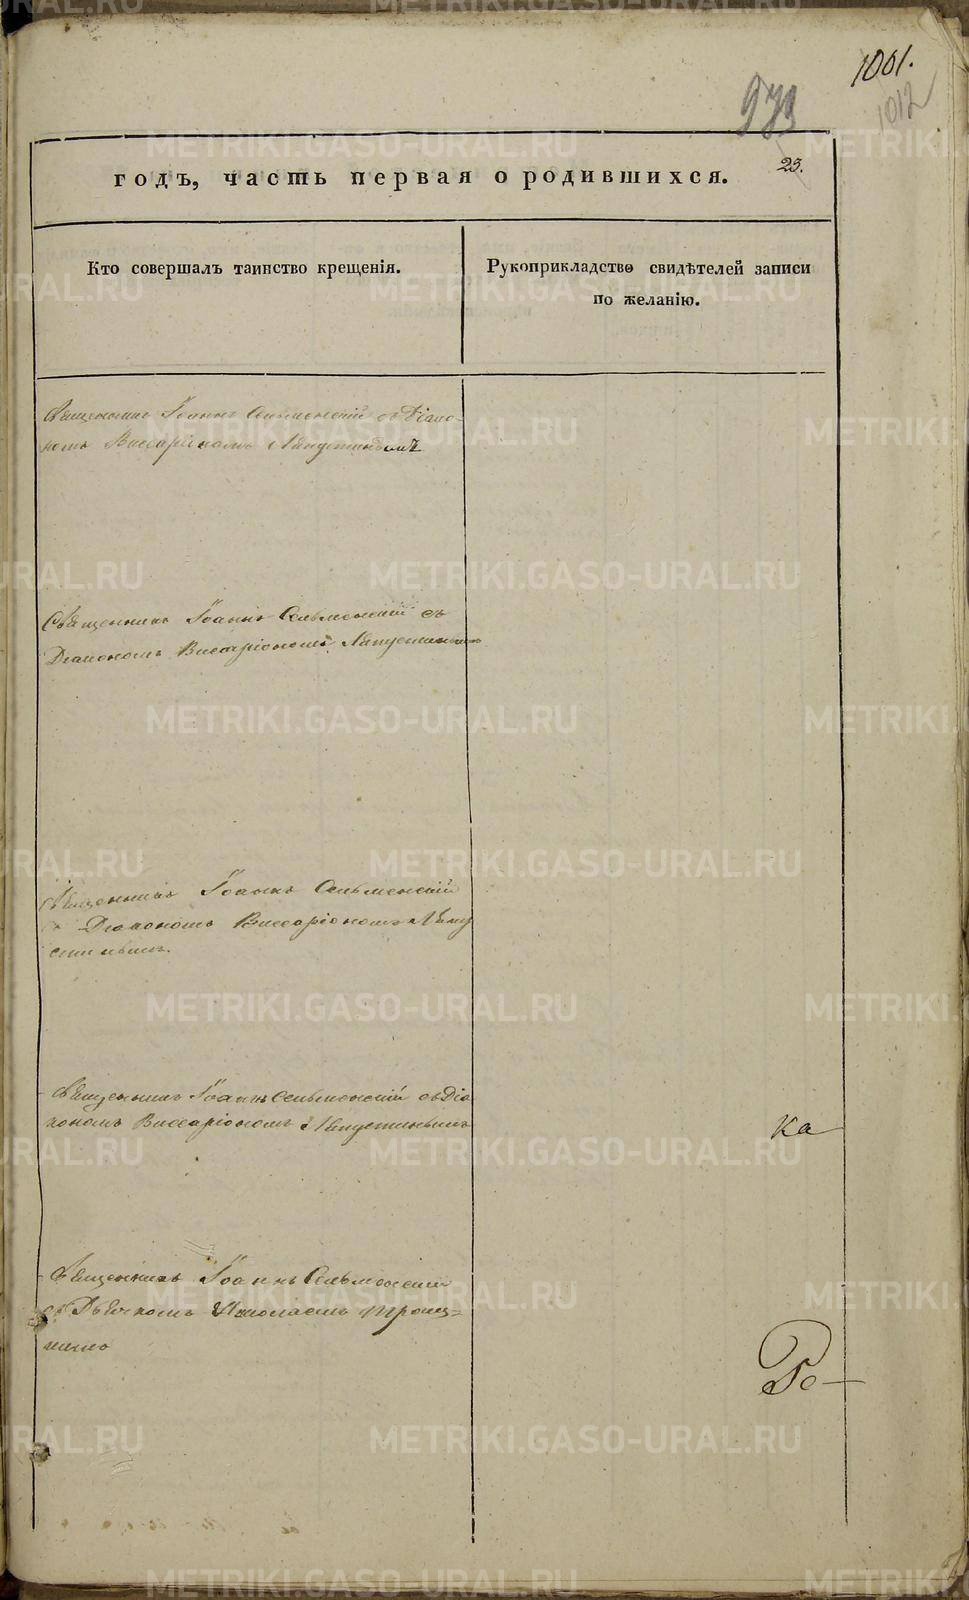 1001.
973
1012
23.
годъ, часть первая о родившихся.
Кто совершалъ таинство крещенія.
Рукоприкладство свидѣтелей записи
по желанію.
Священникъ Іоаннъ Сельменскій съ Діако-
номъ Виссаріономъ Ляпустинымъ
Священникъ Іоаннъ Сельменскій съ
Діакономъ Виссаріономъ Ляпустинымъ
Священникъ Іоаннъ Сельменскій
съ Діакономъ Виссаріономъ Ляпу
стинымъ.
Священникъ Іоаннъ Сельменскій съ Діа
кономъ Виссаріономъ Ляпустинымъ
ка
Священникъ Іоаннъ Сельменскій
съ Дьячкомъ Николаемъ
Ре
METRIKI.GASO-URAL.RU